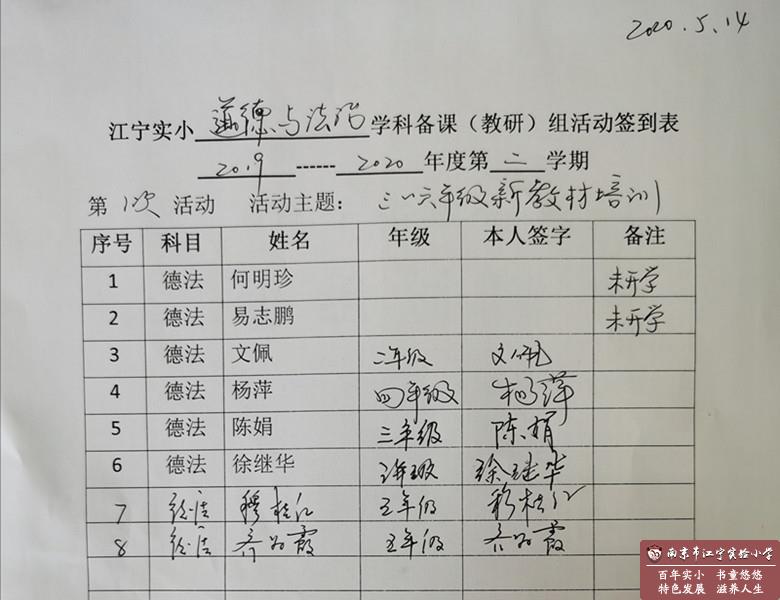 2020.5.14
江宁实小 道德与法治 学科备课（教研）组活动签到表
2019 ------ 2020 年度第 二 学期
第 1次 活动 活动主题： 三~六年级新教材培训
序号 科目 姓名 年级 本人签字 备注
1 德法 何明珍 未开学
2 德法 易志鹏 未开学
3 德法 文佩 二年级 文佩
4 德法 杨萍 四年级 杨萍
5 德法 陈娟 三年级 陈娟
6 德法 徐继华 徐继华
7 穆桂红 五年级 穆桂红
8 霞 五年级 霞
南京市江宁实验小学
百年实小 书童悠悠
特色发展 滋养人生